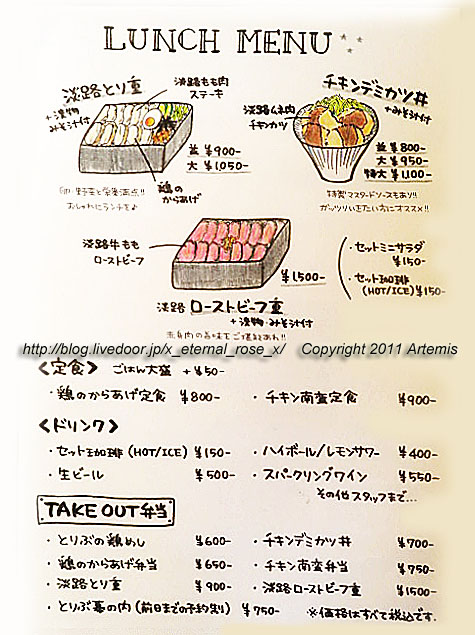 LUNCH MENU
淡路とり重
+漬物
みそ汁付
淡路もも肉
ステーキ
並 ¥900-
大 ¥1,050-
鶏の
からあげ
卵・野菜と栄養満点!!
おしゃれにランチを♪
チキンデミカツ丼
+みそ汁付
淡路ムネ肉
チキンカツ
並 ¥800-
大 ¥950-
特大 ¥1,100-
特製マスタードソースもあり!!
ガッツリいきたい方にオススメ!!
淡路牛もも
ローストビーフ
¥1,500-
淡路 ローストビーフ重
+漬物・みそ汁付
赤身肉の旨味をご堪能あれ!!
・セットミニサラダ
¥150-
・セット珈琲
(HOT/ICE) ¥150-
http://blog.livedoor.jp/x_eternal_rose_x/ Copyright 2011 Artemis
<定食> ごはん大盛 + ¥50-
・鶏のからあげ定食 ¥800-
・チキン南蛮定食 ¥900-
<ドリンク>
・セット珈琲 (HOT/ICE) ¥150-
・ハイボール/レモンサワー ¥400-
・生ビール ¥500-
・スパークリングワイン ¥550-
その他スタッフまで…
TAKE OUT弁当
・とりぶの鶏めし ¥600-
・チキンデミカツ丼 ¥700-
・鶏のからあげ弁当 ¥650-
・チキン南蛮弁当 ¥750-
・淡路とり重 ¥900-
・淡路ローストビーフ重 ¥1500-
・とりぶ幕の内 (前日までの予約制) ¥750-
※価格はすべて税込です.